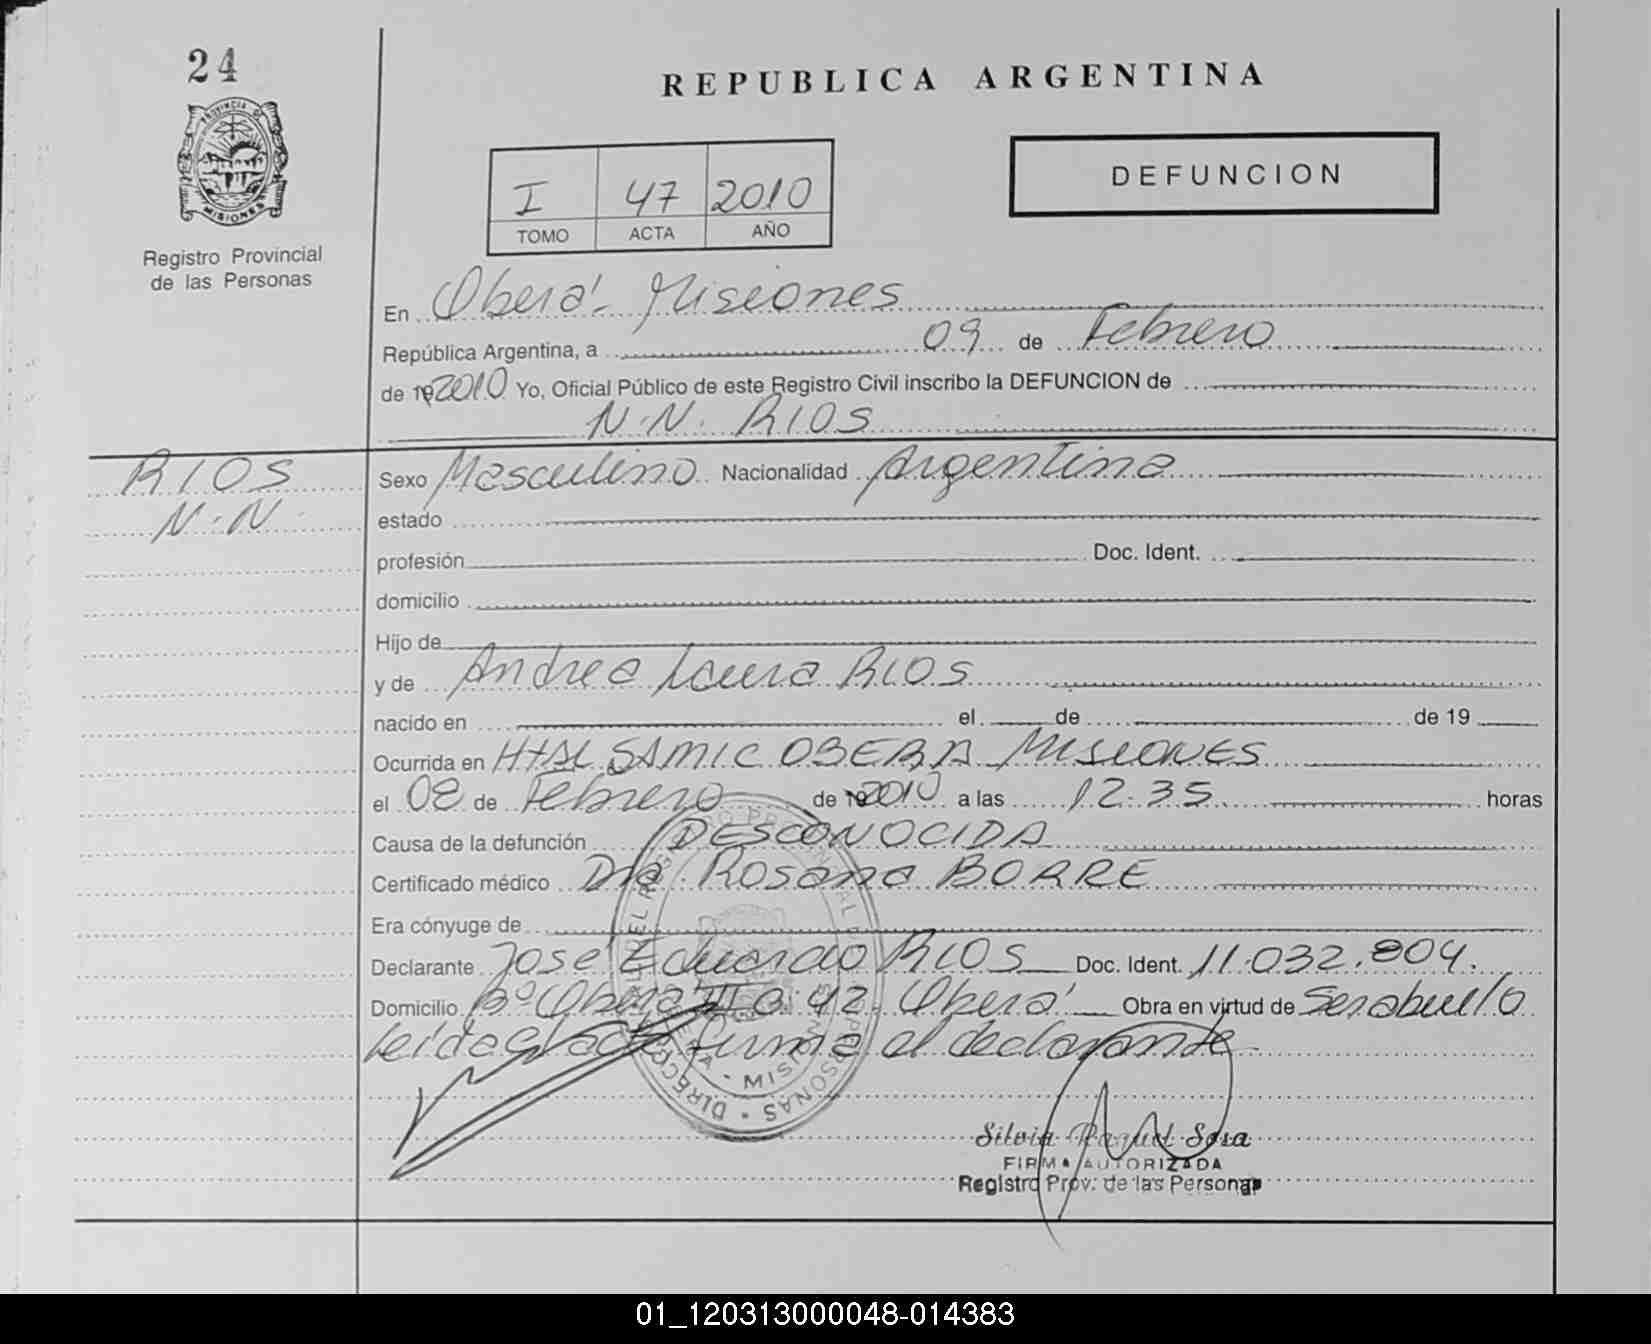 24
REPUBLICA ARGENTINA
PROVINCIA DE
MISIONES
Registro Provincial
de las Personas
I 47 2010
TOMO ACTA AÑO
DEFUNCION
En Oberá - Misiones
República Argentina, a 09 de Febrero
de 2010 Yo, Oficial Público de este Registro Civil inscribo la DEFUNCION de
N.N. RIOS
RIOS
N.N.
Sexo Masculino Nacionalidad Argentina
estado
profesión Doc. Ident.
domicilio
Hijo de
y de Andrea Laura RIOS
nacido en el de de 19
Ocurrida en SAMIC OBERA MISIONES
el 08 de Febrero de 2010 a las 12.35 horas
Causa de la defunción DESCONOCIDA
Certificado médico Dra Rosana BORRE
Era cónyuge de
Declarante José Eduardo RIOS Doc. Ident. 11.032.804.
Domicilio Bº Oberá III C: 42. Oberá Obra en virtud de Ser abuelo
Leída el acta firma el declarante
MISIONES
Silvia Raquel Sosa
FIRMA AUTORIZADA
Registro Prov. de las Personas
01_120313000048-014383